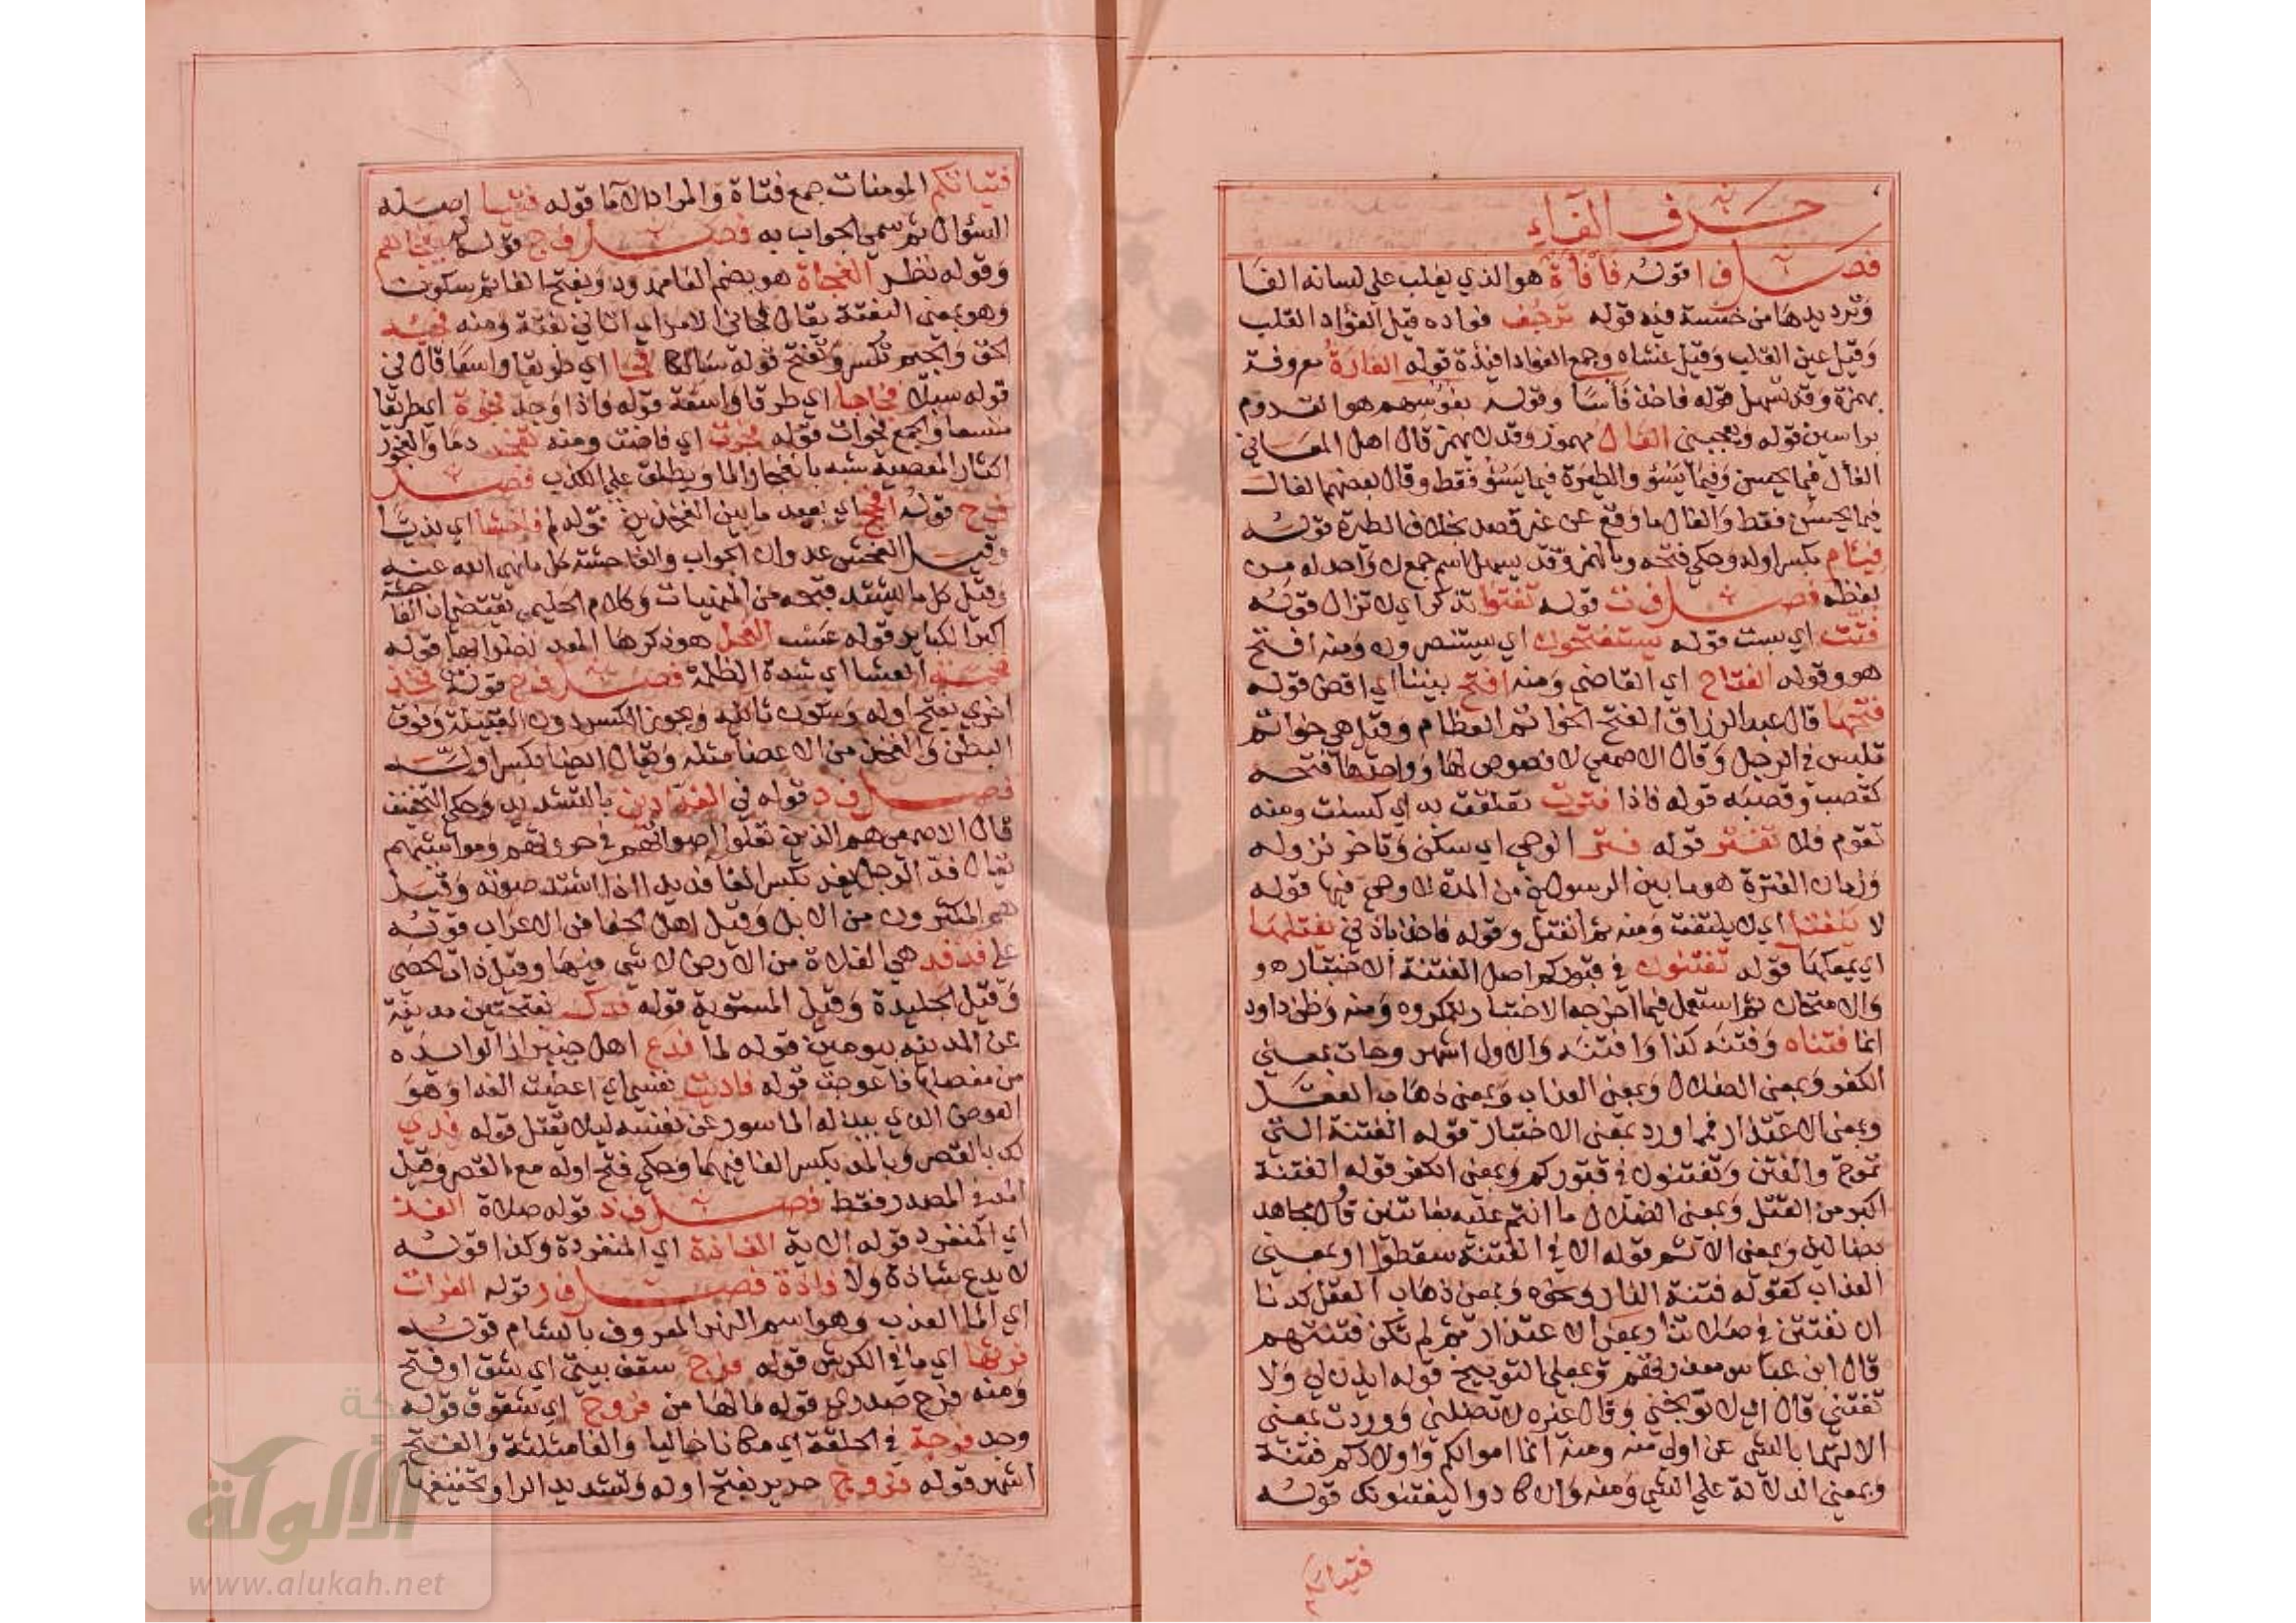 حرف الفاء
فصل ف ا قوله فأفأة هو الذي يغلب على لسانه الفا
وترديدها من حبسة فيه قوله ترجف فواده قيل الفؤاد القلب
وقيل عين القلب وقيل غشاه وجمع الفواد افئدة قوله الفارة معروفة
بهمزة وقد تسهل قوله فاخذ فأسا وقوله بفؤسهم هو القدوم
براسين قوله ويعجبني الفال مهموز وقد لا يهمز قال اهل المعاني
الفأل فيما يحسن وفيما يسؤ والطيرة فيما يسؤ فقط وقال بعضهم الفال
فيما يحسن فقط والفال ما وقع عن غير قصد بخلاف الطيرة قوله
فيئام بكسر اوله وحكي فتحه وبالهمز وقد يسهل اسم جمع لا واحد له من
لفظه فصل ف ت قوله تفتوا تذكر اي لا تزال قوله
فتت اي بست قوله يستفتحون اي يستنصرون ومنه افتح
هو وقوله الفتاح اي القاضي ومنه افتح بيننا اي اقض قوله
فتخها قال عبد الرزاق الفتخ الخواتم العظام وقيل هي خواتم
تلبس في الرجل وقال الاصمعي لا فصوص لها وواحدها فتخه
كقصب وقصبه قوله فاذا فترت تعلقت به اي كسلت ومنه
تقوم فلا تفتر قوله فتر الوحي اي سكن وتاخر نزوله
وزمان الفترة هو ما بين الرسولين من المدة لا وحي فيها قوله
لا ينفتل اي لا يلتفت ومنه ثم انفتل وقوله فاخذ باذني يفتلها
اي يمعكها قوله تفتنون في قبوركم اصل الفتنة الاختبار هو
والامتحان ثم استعمل فيما اخرجه الاختبار للمكروه ومنه وظن داود
انما فتناه وفتنه كذا وافتنه والاول اشهر وجات بمعني
الكفر وبمعنى الضلال وبمعنى العذاب وبمعنى ذهاب العقل
وبمعنى الاعتذار فما ورد بمعنى الاختبار قوله الفتنة التي
تموج والفتن وتفتنون في قبوركم وبمعنى الكفر قوله الفتنة
اكبر من القتل وبمعنى الضلال ما انتم عليه بفاتنين قال مجاهد
بضالين وبمعنى الاثم قوله الا في الفتنة سقطوا وبمعني
العذاب كقوله فتنة النار ونحوه وبمعنى ذهاب العقل كدنا
ان نفتتن في صلاتنا وبمعنى الاعتذار ثم لم تكن فتنتهم
قال ابن عباس معذرتهم وبمعنى التوبيخ قوله ايذن لي ولا
تفتني قال اي لا توبخني وقال غيره لا تضلني ووردت بمعني
الالتها بالشي عن اولي منه ومنه انما اموالكم واولادكم فتنة
وبمعني الدلالة علي الشي ومنه وان كادوا ليفتنونك قوله
فتياتكم
فتياتكم المومنات جمع فتاة والمراد الاما قوله فتيا اصله
السؤال ثم سمي الجواب به فصل ف ج قوله
وقوله نظر الفجاة هو بضم الفا ممدود وبفتح الفا ثم سكون
وهو بمعني البغتة يقال فجاني الامر اي اتاني بغتة ومنه فجئه
الحق والجيم تكسر وتفتح قوله سالكا فجا اي طريقا واسعا قال في
قوله سبلا فجاجا اي طرقا واسعة قوله فاذا وجد فجوة اي طريقا
متسعا والجمع فجوات قوله فجرت اي فاضت ومنه تفجر دما والفجور
اكثار المعصية شبه بانفجار الما ويطلق علي الكذب فصل
ف ح قوله افحج اي بعيد ما بين الفخذين قوله لم فاحشا اي بذيا
وقيل الفحش عدوان الجواب والفاحشة كل ما نهي الله عنه
وقيل كل ما يشتد قبحه من المنهيات وكلام الحليمي يقتضي ان الفاحشة
اكبر الكباير قوله عسب الفحل هو ذكرها المعد لضرابها قوله
فحمة العشا اي شدة الظلمة فصل ف خ قوله فخذ
اخري بفتح اوله وسكون ثانيه ويجوز الكسر دون القبيلة وفوق
البطن والفخذ من الاعضا مثله ويقال ايضا بكسر اوله
فصل ف د قوله في الفدادين بالتشديد وحكي التخفيف
قال الاصمعي هم الذين تعلوا اصواتهم في حروثهم ومواشيهم
يقال فد الرجل يفد بكسر الفا فديدا اذا اشتد صوته وقيل
هم المكثرون من الابل وقيل اهل الجفا من الاعراب قوله
علي فدفد هي الفلاة من الارض لا شي فيها وقيل ذات الحصي
وقيل الجليدة وقيل المستوية قوله فدك بفتحتين مدينة
عن المدينه بيومين قوله لما فدع اهل خيبر
من مفصلها فاعوجت قوله فاديت نفسي اي اعطيت الفدا وهو
العوض الذي يبذله الماسور عن نفسه ليلا يقتل قوله فدي
لك بالقصر وبالمد بكسر الفا فيهما وحكي فتح اوله مع القصر وقيل
المد في المصدر فقط فصل ف ذ قوله صلاة الفذ
اي المنفرد قوله الاية الفاذة اي المنفردة وكذا قوله
لا يدع شاذة ولا فاذة فصل ف ر قوله الفرات
اي الما العذب وهو اسم النهر المعروف بالشام قوله
فرثها اي ما في الكرش قوله فرج سقف بيتي اي شق او فتح
ومنه فرج صدري قوله ما لها من فروج اي شقوق قوله
وجد فرجة في الحلقة اي مكانا خاليا والفا مثلثة والفتح
اشهر قوله فروج حرير بفتح اوله وتشديد الرا وتخفيفها
الألوكة
www.alukah.net